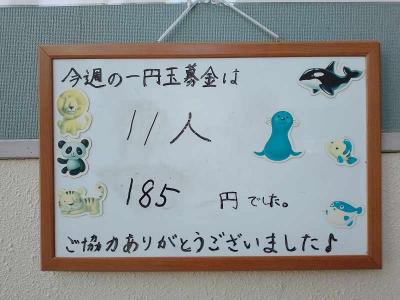 今週の一円玉募金は
11人
185 円でした。
ご協力ありがとうございました♪